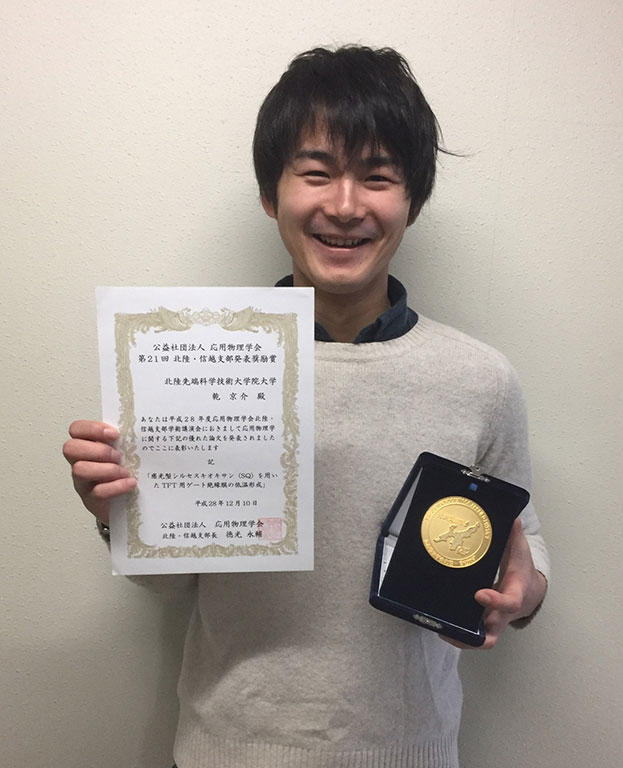 公益社団法人 応用物理学会
第21回 北陸・信越支部発表奨励賞
北陸先端科学技術大学院大学
乾 京介 殿
あなたは平成28年度応用物理学会北陸・
信越支部学術講演会におきまして応用物理学
に関する下記の優れた論文を発表されました
のでここに表彰いたします
記
「感光型シルセスキオキサン(SQ)を用い
たTFT用ゲート絶縁膜の低温形成」
平成28年12月10日
公益社団法人 応用物理学会
北陸・信越支部長 徳光 永輔